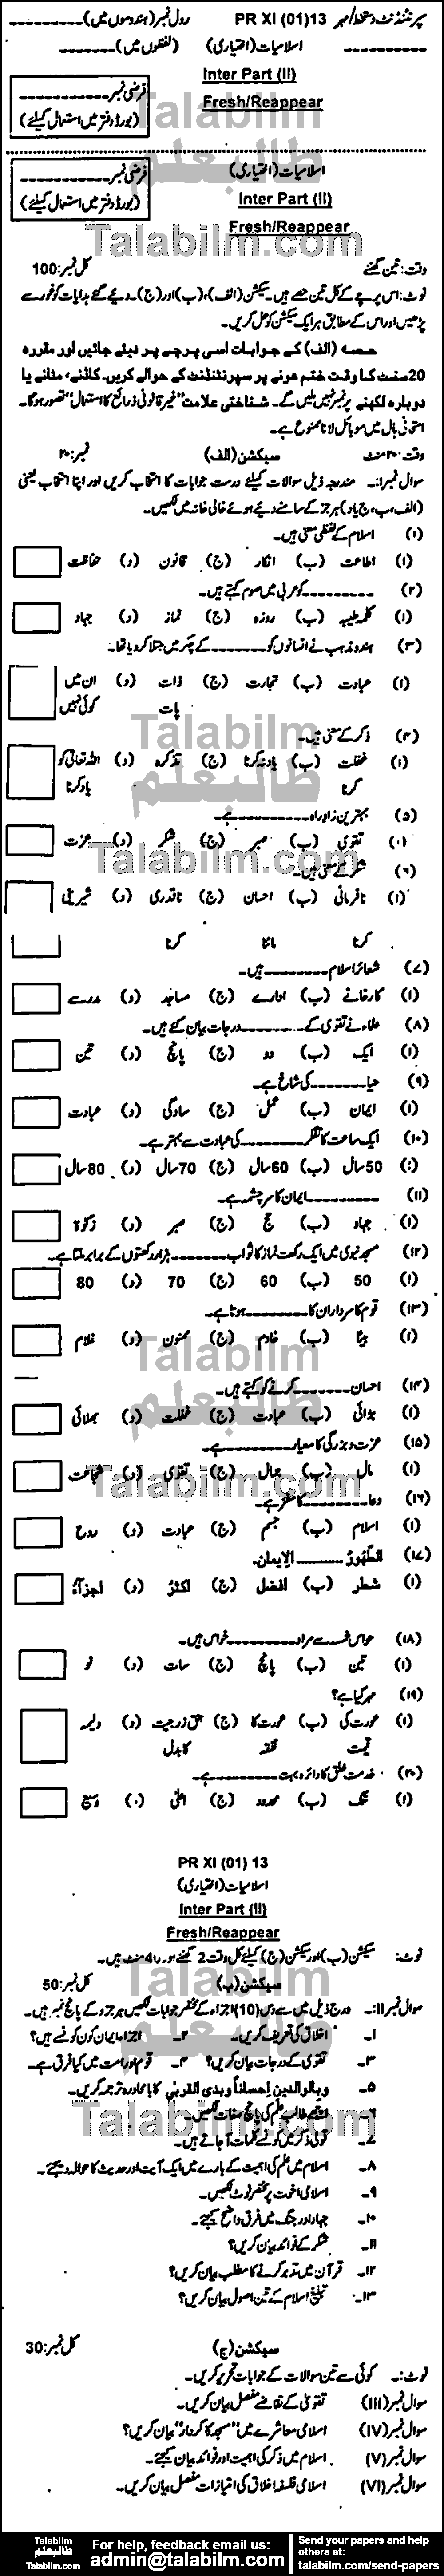 سپرنٹنڈنٹ دستخط/مہر PR XI (01)13 رول نمبر (ہندسوں میں)۔
اسلامیات (اختیاری) (لفظوں میں)۔
Inter Part (II)
Fresh/Reappear
فرضی نمبر۔
(بورڈ دفتر میں استعمال کیلئے)
Talabilm
طالبعلم
Talabilm.com
اسلامیات (اختیاری)
Inter Part (II)
Fresh/Reappear
فرضی نمبر۔
(بورڈ دفتر میں استعمال کیلئے)
وقت: تین گھنٹے کل نمبر: 100
نوٹ: اس پرچے کے کل تین حصے ہیں۔ سیکشن (الف)، (ب) اور (ج)۔ دیئے گئے ہدایات کو غور سے
پڑھیں اور اس کے مطابق ہر ایک سیکشن کو حل کریں۔
حصہ (الف) کے جوابات اسی پرچے پر دیئے جائیں اور مقررہ
20منٹ کا وقت ختم ہونے پر سپرنٹنڈنٹ کے حوالے کریں۔ کاٹنے، مٹانے یا
دوبارہ لکھنے پر نمبر نہیں ملیں گے۔ شناختی علامت "غیر قانونی ذرائع کا استعمال" تصور ہوگا۔
امتحانی ہال میں موبائل لانا ممنوع ہے۔
وقت: ۲۰ منٹ سیکشن (الف) نمبر: ۲۰
سوال نمبرI:۔ مندرجہ ذیل سوالات کیلئے درست جوابات کا انتخاب کریں اور اپنا انتخاب یعنی
(الف، ب، ج یا د) ہر جز کے سامنے دیئے ہوئے خالی خانہ میں لکھیں۔
(۱) اسلام کے لفظی معنی ہیں۔
(ا) اطاعت (ب) انکار (ج) قانون (د) حفاظت
(۲) ۔۔۔۔۔۔ کو عربی میں صوم کہتے ہیں۔
(ا) کلمہ طیبہ (ب) روزہ (ج) نماز (د) جہاد
(۳) ہندو مذہب نے انسانوں کو ۔۔۔۔۔۔ کے چکر میں مبتلا کر دیا تھا۔
(ا) عبادت (ب) تجارت (ج) ذات پات (د) ان میں کوئی نہیں
(۴) ذکر کے معنی ہیں۔
(ا) غفلت کرنا (ب) یاد نہ کرنا (ج) تذکرہ (د) اللہ تعالیٰ کو یاد کرنا
(۵) بہترین زاد راہ ۔۔۔۔۔۔ ہے۔
(ا) تقویٰ (ب) صبر (ج) شکر (د) عزت
(۶) شکر کے معنی ہیں۔
(ا) نافرمانی کرنا (ب) احسان ماننا (ج) ناقدری کرنا (د) شیرینی
(۷) شعائر اسلام ۔۔۔۔۔۔ ہیں۔
(ا) کارخانے (ب) ادارے (ج) مساجد (د) مدرسے
(۸) علماء نے تقویٰ کے ۔۔۔۔۔۔ درجات بیان کئے ہیں۔
(ا) ایک (ب) دو (ج) پانچ (د) تین
(۹) حیا ۔۔۔۔۔۔ کی شاخ ہے۔
(ا) ایمان (ب) عمل (ج) سادگی (د) عبادت
(۱۰) ایک ساعت کا تفکر ۔۔۔۔۔۔ کی عبادت سے بہتر ہے۔
(ا) 50سال (ب) 60سال (ج) 70سال (د) 80سال
(۱۱) ۔۔۔۔۔۔ ایمان کا سرچشمہ ہے۔
(ا) جہاد (ب) حج (ج) صبر (د) زکوٰۃ
(۱۲) مسجد نبوی میں ایک رکعت نماز کا ثواب ۔۔۔۔۔۔ ہزار رکعتوں کے برابر ملتا ہے۔
(ا) 50 (ب) 60 (ج) 70 (د) 80
(۱۳) قوم کا سردار ان کا ۔۔۔۔۔۔ ہوتا ہے۔
(ا) بیٹا (ب) خادم (ج) ممنون (د) غلام
(۱۴) احسان ۔۔۔۔۔۔ کرنے کو کہتے ہیں۔
(ا) بڑائی (ب) عبادت (ج) غفلت (د) بھلائی
(۱۵) عزت و بزرگی کا معیار ۔۔۔۔۔۔ ہے۔
(ا) مال (ب) جمال (ج) تقویٰ (د) شجاعت
(۱۶) دعا ۔۔۔۔۔۔ کا مغز ہے۔
(ا) اسلام (ب) جسم (ج) عبادت (د) روح
(۱۷) الطَّهُورُ ۔۔۔۔۔۔ الإيمان.
(ا) شطر (ب) افضل (ج) اکثر (د) اجزاء
(۱۸) حواس خمسہ سے مراد ۔۔۔۔۔۔ حواس ہیں۔
(ا) تین (ب) پانچ (ج) سات (د) نو
(۱۹) مہر کیا ہے؟
(ا) عورت کی قیمت (ب) عورت کا نفقہ (ج) حق زوجیت کا بدل (د) ولیمہ
(۲۰) خدمت خلق کا دائرہ بہت ۔۔۔۔۔۔ ہے۔
(ا) تنگ (ب) محدود (ج) اعلیٰ (د) وسیع
PR XI (01) 13
اسلامیات (اختیاری)
Inter Part (II)
Fresh/Reappear
نوٹ: سیکشن (ب) اور سیکشن (ج) کیلئے کل وقت 2 گھنٹے اور 40 منٹ ہیں۔
سیکشن (ب) کل نمبر: 50
سوال نمبرII:۔ درج ذیل میں سے دس (10) اجزاء کے مختصر جوابات لکھیں ہر جزو کے پانچ نمبر ہیں۔
۱۔ اخلاق کی تعریف کریں۔ ۲۔ اجزاء ایمان کون کونسے ہیں؟
۳۔ تقویٰ کے درجات بیان کریں؟ ۴۔ قوم اور امت میں کیا فرق ہے۔
۵۔ وبالوالدين إحساناً وبذى القربىٰ کا بامحاورہ ترجمہ کریں۔
۶۔ اچھے طالب علم کی پانچ صفات لکھیں۔
۷۔ قولی ذکر میں کونسے کلمات آجاتے ہیں۔
۸۔ اسلام میں علم کی اہمیت کے بارے میں ایک آیت اور حدیث کا حوالہ دیجئے۔
۹۔ اسلامی اخوت پر مختصر نوٹ لکھیں۔
۱۰۔ جہاد اور جنگ میں فرق واضح کیجئے۔
۱۱۔ شکر کے فوائد بیان کریں؟
۱۲۔ قرآن میں تدبر کرنے کا مطلب بیان کریں؟
۱۳۔ تبلیغ اسلام کے تین اصول بیان کریں؟
سیکشن (ج) کل نمبر: 30
نوٹ:۔ کوئی سے تین سوالات کے جوابات تحریر کریں۔
سوال نمبر (III) تقویٰ کے تقاضے مفصل بیان کریں۔
سوال نمبر (IV) اسلامی معاشرے میں "مسجد کا کردار" بیان کریں؟
سوال نمبر (V) اسلام میں ذکر کی اہمیت اور فوائد بیان کیجئے۔
سوال نمبر (VI) اسلامی فلسفہ اخلاق کی امتیازات مفصل بیان کریں؟
Talabilm
طالبعلم
Talabilm.com
For help, feedback email us:
admin@talabilm.com
Send your papers and help
others at:
talabilm.com/send-papers